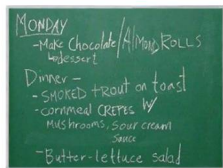 MONDAY
-Make Chocolate/Almond ROLLS
dessert
Dinner-
-SMOKED TROUT on toast
-cornmeal CREPES W/
Mushrooms, Sour cream
Sauce
-Butter-lettuce salad